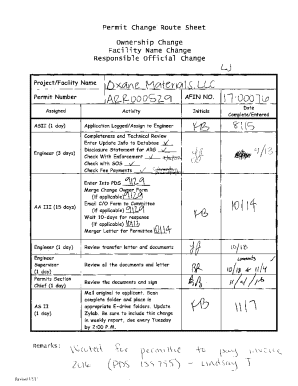 Permit Change Route Sheet
Ownership Change
Facility Name Change
Responsible Official Change
Project/Facility Name Oxane Materials, LLC
Permit Number ARR000529 AFIN NO. 17-00076
Assigned Activity Initials Date Complete/Entered
ASII (1 day) Application Logged/Assign to Engineer KB 8/15
Engineer (3 days)
Completeness and Technical Review
Enter Update Info to Database ✓
Disclosure Statement for ASG ✓
Check With Enforcement ✓
Check with SOS ✓
Check Fee Payments ✓
9/13
AA III (15 days)
Enter Into PDS 9/29
Merge Change Owner Form
(if applicable) 9/29
Email C/O Form to Committee
(if applicable) 9/29
Wait 10-days for response
(if applicable) 10/13
Merger Letter for Permittee 10/14
KB 10/14
Engineer (1 day) Review transfer letter and documents 10/18
Engineer Supervisor (1 day) Review all the documents and letter BR comments 10/18 11/4
Permits Section Chief (1 day) Review the documents and sign
AS II (1 day)
Mail original to applicant. Scan
complete folder and place in
appropriate E-drive folders. Update
Zylab. Be sure to include this change
in weekly report, due every Tuesday
by 2:00 P.M.
KB 11/7
Remarks: Waited for permittee to pay invoice
(PDS 135755) - Lindsay T